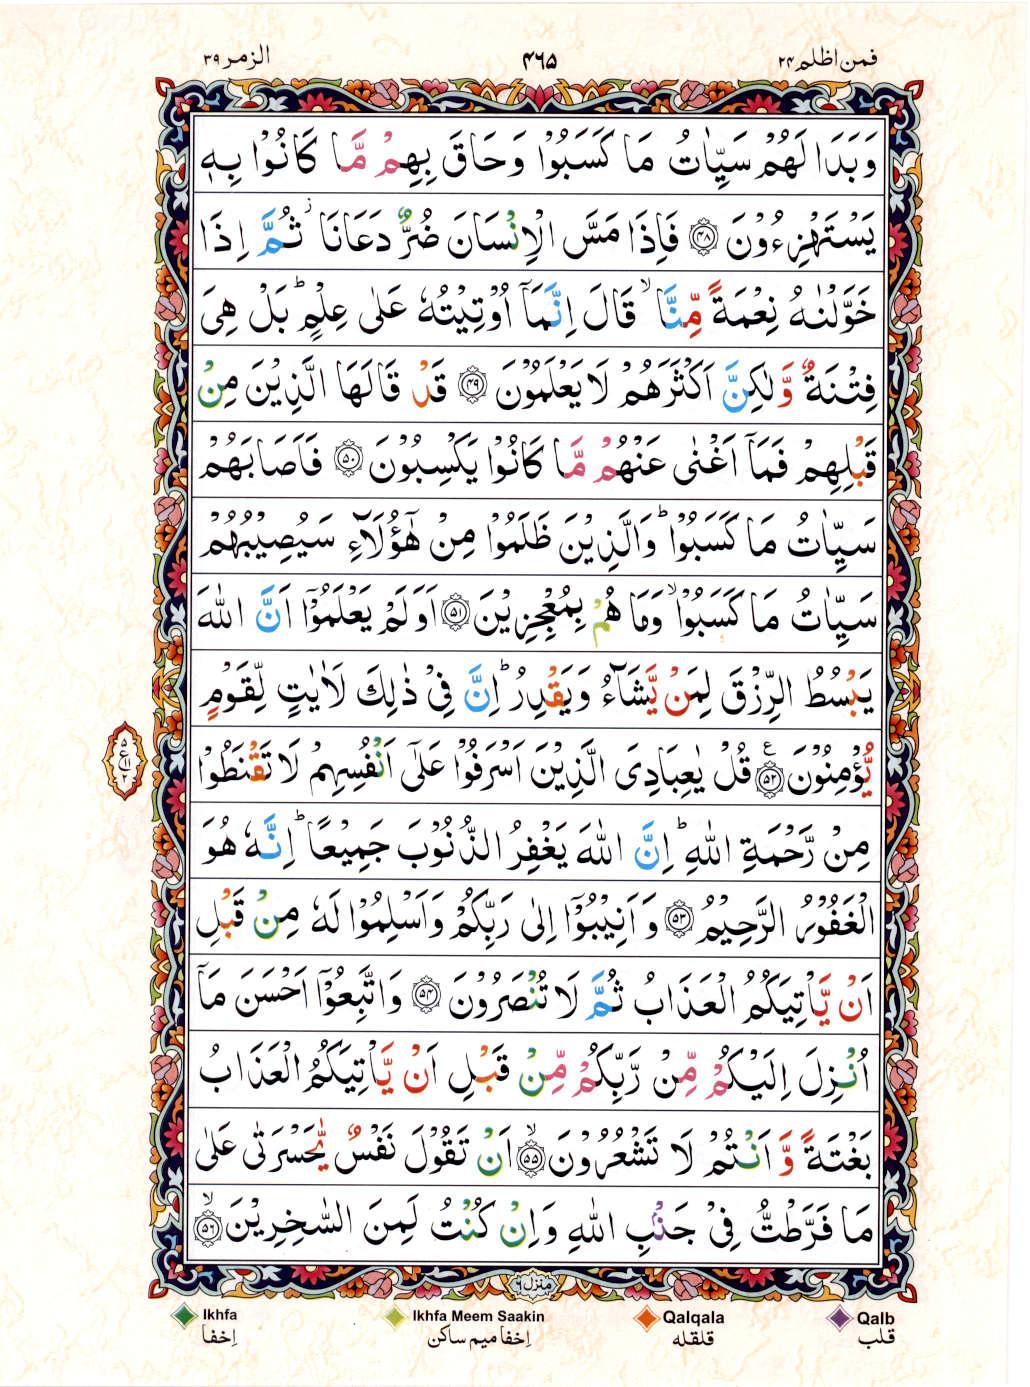 فمن اظلم ۲۴
۴۶۵
الزمر ۳۹
وَبَدَا لَهُمْ سَيِّاٰتُ مَا كَسَبُوْا وَحَاقَ بِهِمْ مَّا كَانُوْا بِهٖ
يَسْتَهْزِءُوْنَ ﴿۴۸﴾ فَاِذَا مَسَّ الْاِنْسَانَ ضُرٌّ دَعَانَا ز ثُمَّ اِذَا
خَوَّلْنٰهُ نِعْمَةً مِّنَّا ۙ قَالَ اِنَّمَاۤ اُوْتِيْتُهٗ عَلٰى عِلْمٍ ؕ بَلْ هِىَ
فِتْنَةٌ وَّ لٰكِنَّ اَكْثَرَهُمْ لَا يَعْلَمُوْنَ ﴿۴۹﴾ قَدْ قَالَهَا الَّذِيْنَ مِنْ
قَبْلِهِمْ فَمَاۤ اَغْنٰى عَنْهُمْ مَّا كَانُوْا يَكْسِبُوْنَ ﴿۵۰﴾ فَاَصَابَهُمْ
سَيِّاٰتُ مَا كَسَبُوْا ؕ وَالَّذِيْنَ ظَلَمُوْا مِنْ هٰۤؤُلَآءِ سَيُصِيْبُهُمْ
سَيِّاٰتُ مَا كَسَبُوْا ۙ وَمَا هُمْ بِمُعْجِزِيْنَ ﴿۵۱﴾ اَوَلَمْ يَعْلَمُوْۤا اَنَّ اللّٰهَ
يَبْسُطُ الرِّزْقَ لِمَنْ يَّشَآءُ وَيَقْدِرُ ؕ اِنَّ فِىْ ذٰلِكَ لَاٰيٰتٍ لِّقَوْمٍ
يُّؤْمِنُوْنَ ﴿۵۲﴾ ع قُلْ يٰعِبَادِىَ الَّذِيْنَ اَسْرَفُوْا عَلٰٓى اَنْفُسِهِمْ لَا تَقْنَطُوْا
۵
ع ۱۱
۲
مِنْ رَّحْمَةِ اللّٰهِ ؕ اِنَّ اللّٰهَ يَغْفِرُ الذُّنُوْبَ جَمِيْعًا ؕ اِنَّهٗ هُوَ
الْغَفُوْرُ الرَّحِيْمُ ﴿۵۳﴾ وَاَنِيْبُوْۤا اِلٰى رَبِّكُمْ وَاَسْلِمُوْا لَهٗ مِنْ قَبْلِ
اَنْ يَّاْتِيَكُمُ الْعَذَابُ ثُمَّ لَا تُنْصَرُوْنَ ﴿۵۴﴾ وَاتَّبِعُوْۤا اَحْسَنَ مَاۤ
اُنْزِلَ اِلَيْكُمْ مِّنْ رَّبِّكُمْ مِّنْ قَبْلِ اَنْ يَّاْتِيَكُمُ الْعَذَابُ
بَغْتَةً وَّ اَنْتُمْ لَا تَشْعُرُوْنَ ۙ﴿۵۵﴾ اَنْ تَقُوْلَ نَفْسٌ يّٰحَسْرَتٰى عَلٰى
مَا فَرَّطْتُّ فِىْ جَنْۢبِ اللّٰهِ وَاِنْ كُنْتُ لَمِنَ السّٰخِرِيْنَ ۙ﴿۵۶﴾
منزل ۶
Ikhfa
اِخفا
Ikhfa Meem Saakin
اِخفا میم ساکن
Qalqala
قلقله
Qalb
قلب